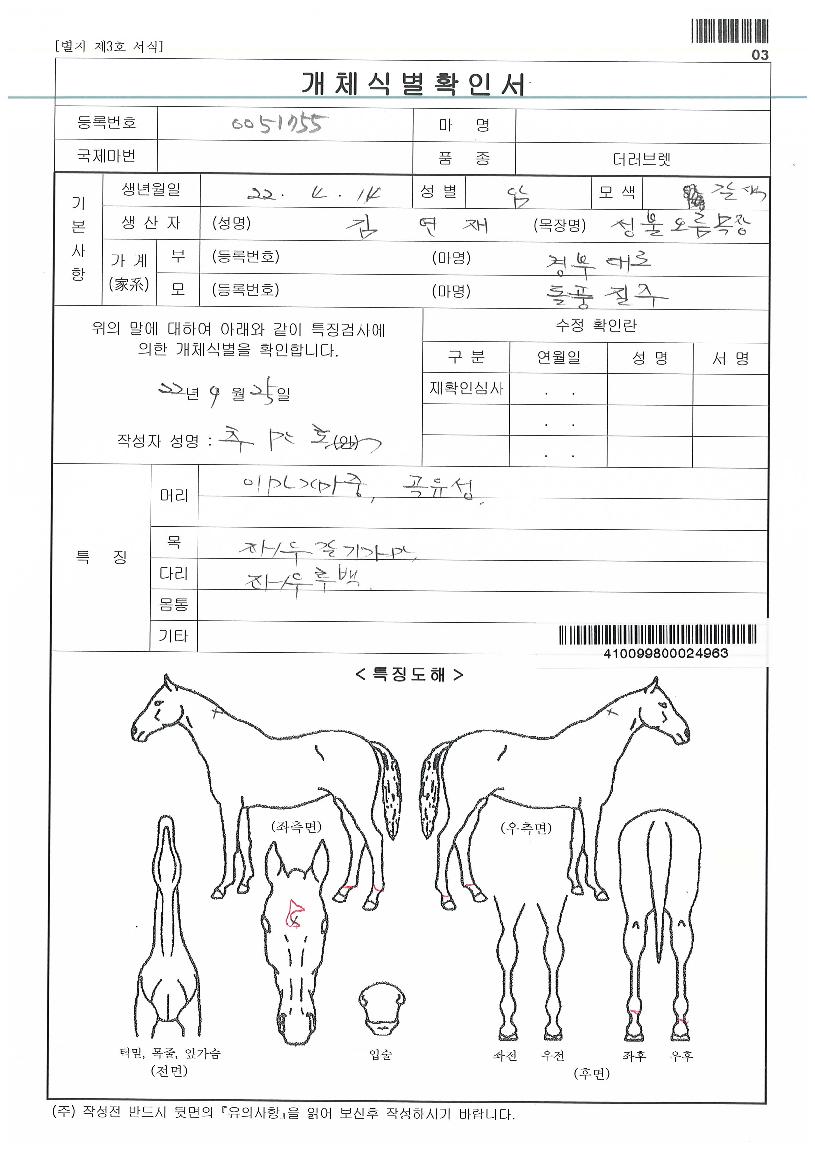 [별지 제3호 서식]
03
개체식별확인서
등록번호 0051755 마 명
국제마번 품 종 더러브렛
기본사항
생년월일 22. 4. 14 성 별 암 모 색 갈색
생 산 자 (성명) 김 연 재 (목장명) 성불오름목장
가 계 (家系) 부 (등록번호) (마명) 경부대로
모 (등록번호) (마명) 돌풍질주
위의 말에 대하여 아래와 같이 특징검사에
의한 개체식별을 확인합니다.
22년 9월 25일
작성자 성명 :
수정 확인란
구 분 연월일 성 명 서 명
재확인심사 . .
. .
. .
특 징
머리 곡유성.
목 좌/우
다리 좌/우후백.
몸통
기타
410099800024963
< 특징도해 >
(좌측면) (우측면)
턱밑, 목줄, 앞가슴 입술 좌전 우전 좌후 우후
(전면) (후면)
(주) 작성전 반드시 뒷면의 『유의사항』을 읽어 보신후 작성하시기 바랍니다.